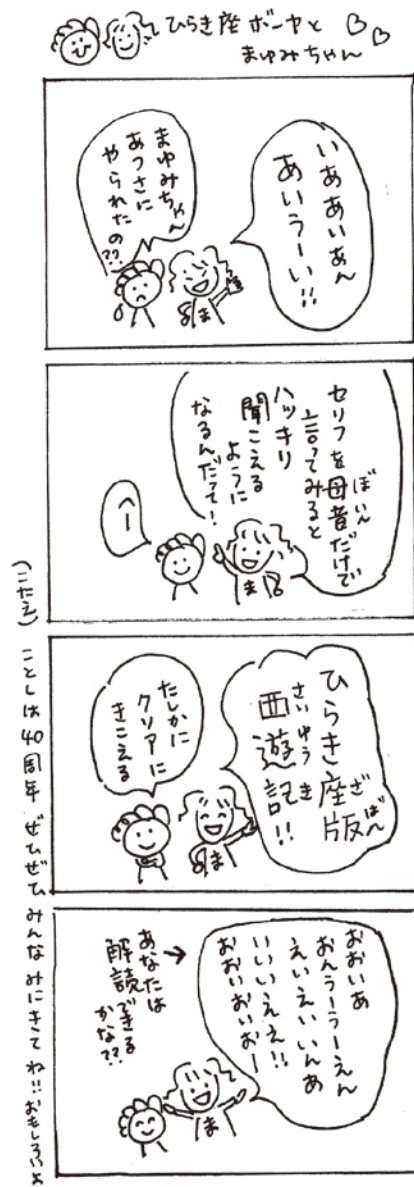 ひらき座ボーヤと
まゆみちゃん
いああいあん
あいうーい!!
まゆみちゃん
あつさに
やられたの??
ま
ぼいん
セリフを母音だけで
言ってみると
ハッキリ
聞こえる
ように
なるんだって!
へー
ま
ざばん
ひらき座版
さいゆうき
西遊記!!
たしかに
クリアに
きこえる
ま
おおいあ
おんうーうーえん
えいえいいんあ
いいいええ!!
おおいおいおー
あなたは→
解読できる
かな??
ま
(こたえ) ことしは40周年 ぜひぜひ みんな みにきて ね!! おもしろいよ